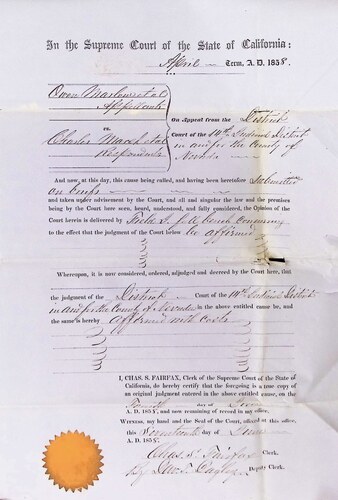 In the Supreme Court of the State of California:
April Term, A. D. 1858.
Owen Marlow et al
Appellants
vs.
Charles Marsh et al
Respondents
On Appeal from the District
Court of the 14th Judicial District
in and for the County of
Nevada
And now, at this day, this cause being called, and having been heretofore submitted
on briefs
and taken under advisement by the Court, and all and singular the law and the premises
being by the Court here seen, heard, understood, and fully considered, the Opinion of the
Court herein is delivered by Field J.
to the effect that the judgment of the Court below be affirmed
Whereupon, it is now considered, ordered, adjudged and decreed by the Court here, that
the judgment of the District Court of the 14th Judicial District
in and for the County of Nevada in the above entitled cause be, and
the same is hereby affirmed with costs
I, CHAS. S. FAIRFAX, Clerk of the Supreme Court of the State
of California, do hereby certify that the foregoing is a true copy of
an original judgment entered in the above entitled cause, on the
day of
A. D. 1858, and now remaining of record in my office.
WITNESS, my hand and the Seal of the Court, affixed at this office,
this Seventeenth day of June
A. D. 1858.
Chas. S. Fairfax Clerk.
By Deputy Clerk.